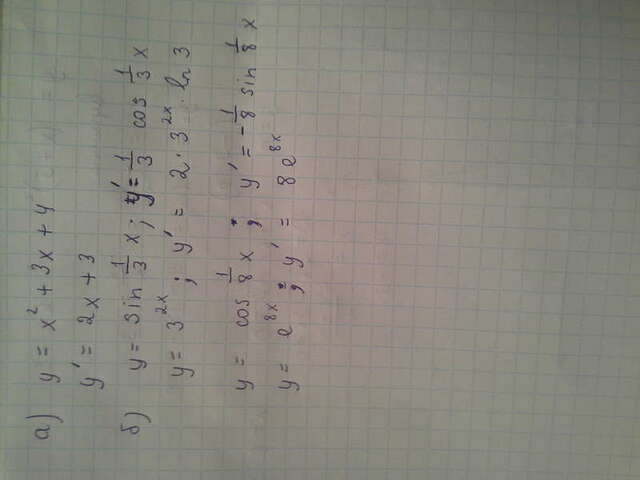 а) y = x² + 3x + 4
y' = 2x + 3
б) y = sin 1/3 x; y' = 1/3 cos 1/3 x
y = 3^2x; y' = 2 · 3^2x · ln 3
y = cos 1/8 x; y' = - 1/8 sin 1/8 x
y = e^8x; y' = 8e^8x